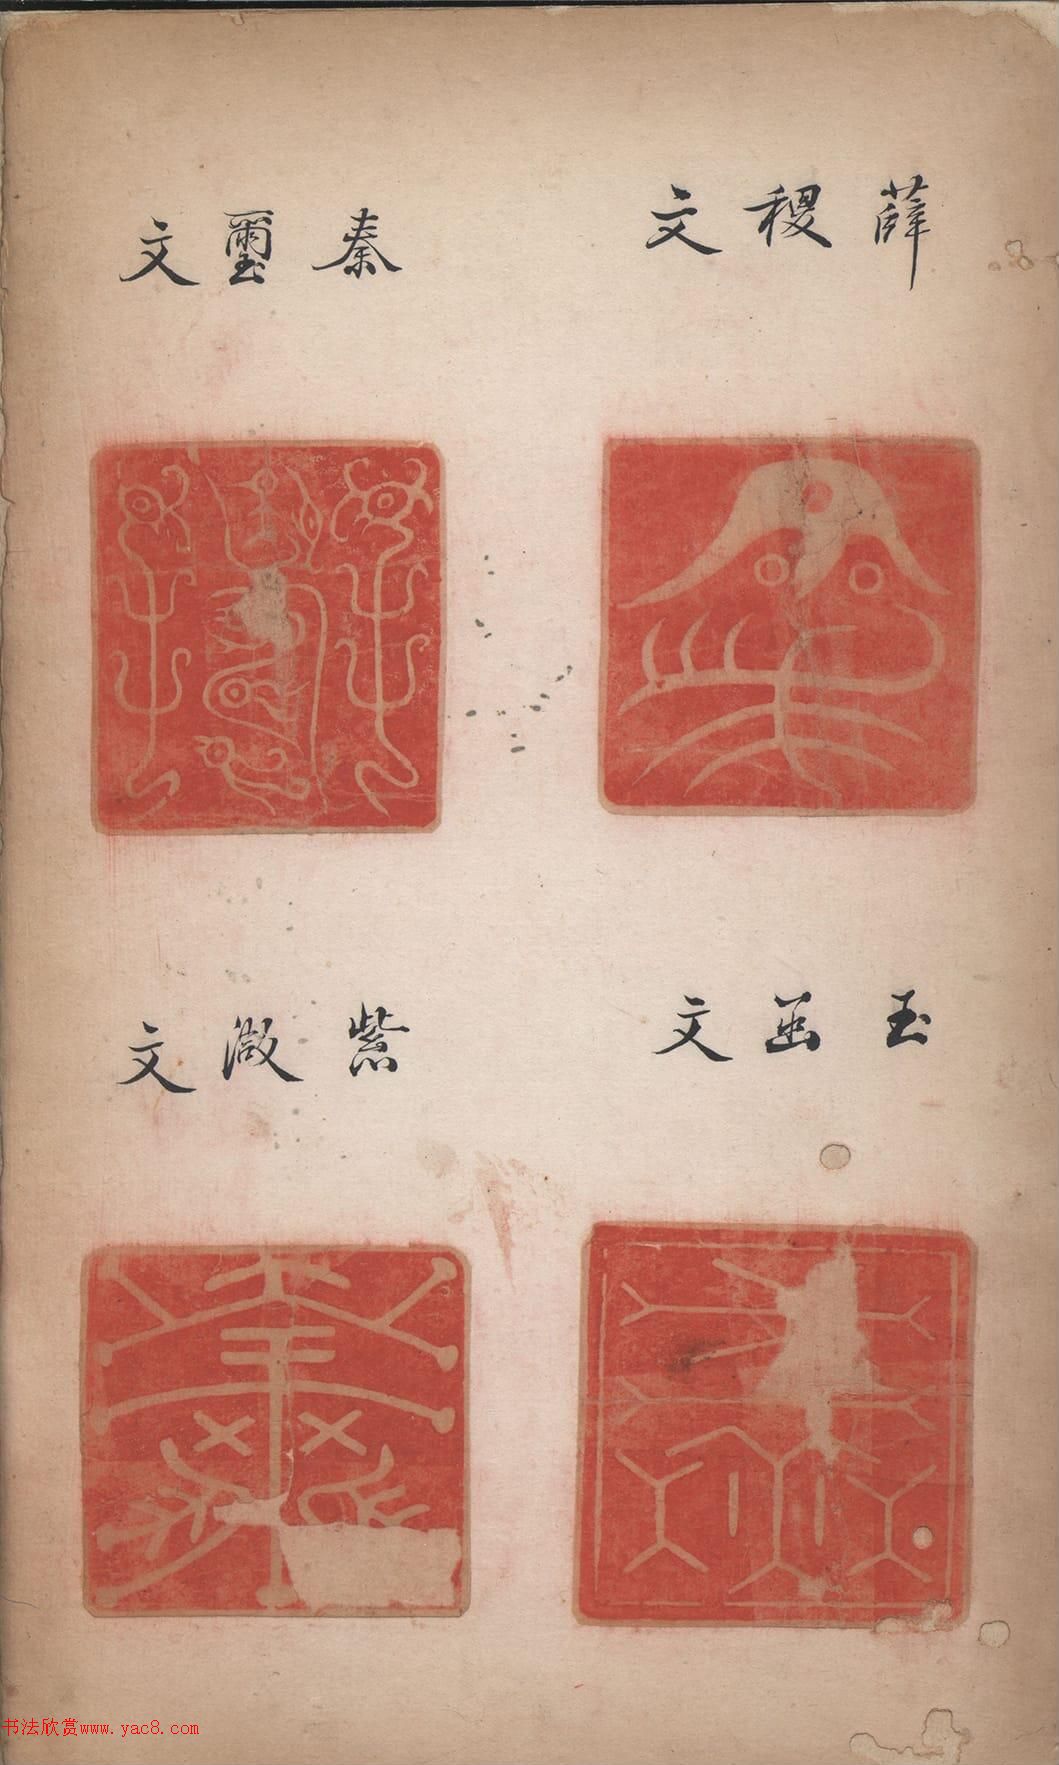 薛稷文
秦璽文
玉文
紫文
书法欣赏www.yac8.com